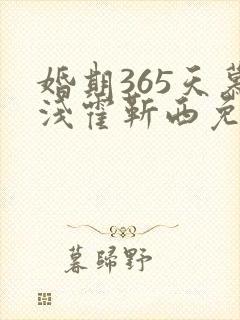 婚期365天慕
浅霍靳西免
暮归野